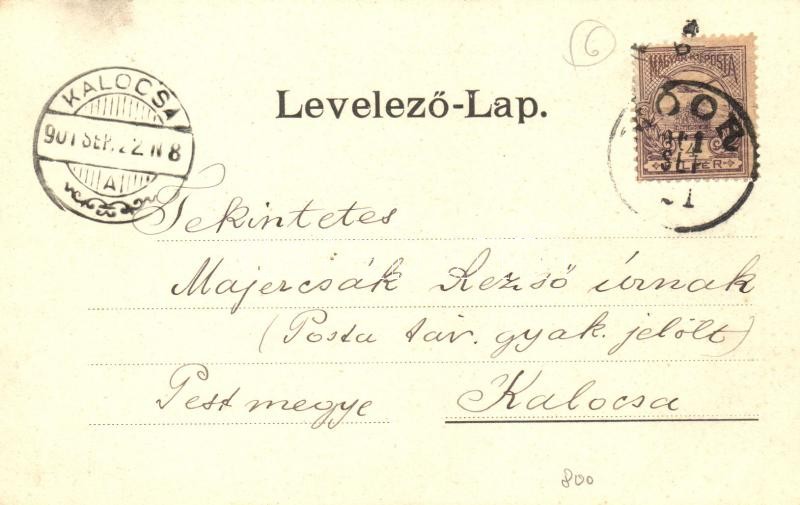 6
MAGYAR KIR. POSTA
FILLÉR
KALOCSA
901 SEP. 22 N 8
A
Levelező-Lap.
901
SEP
21
Tekintetes
Majercsák Rezső úrnak
(Posta táv. gyak. jelölt)
Pest megye Kalocsa
800